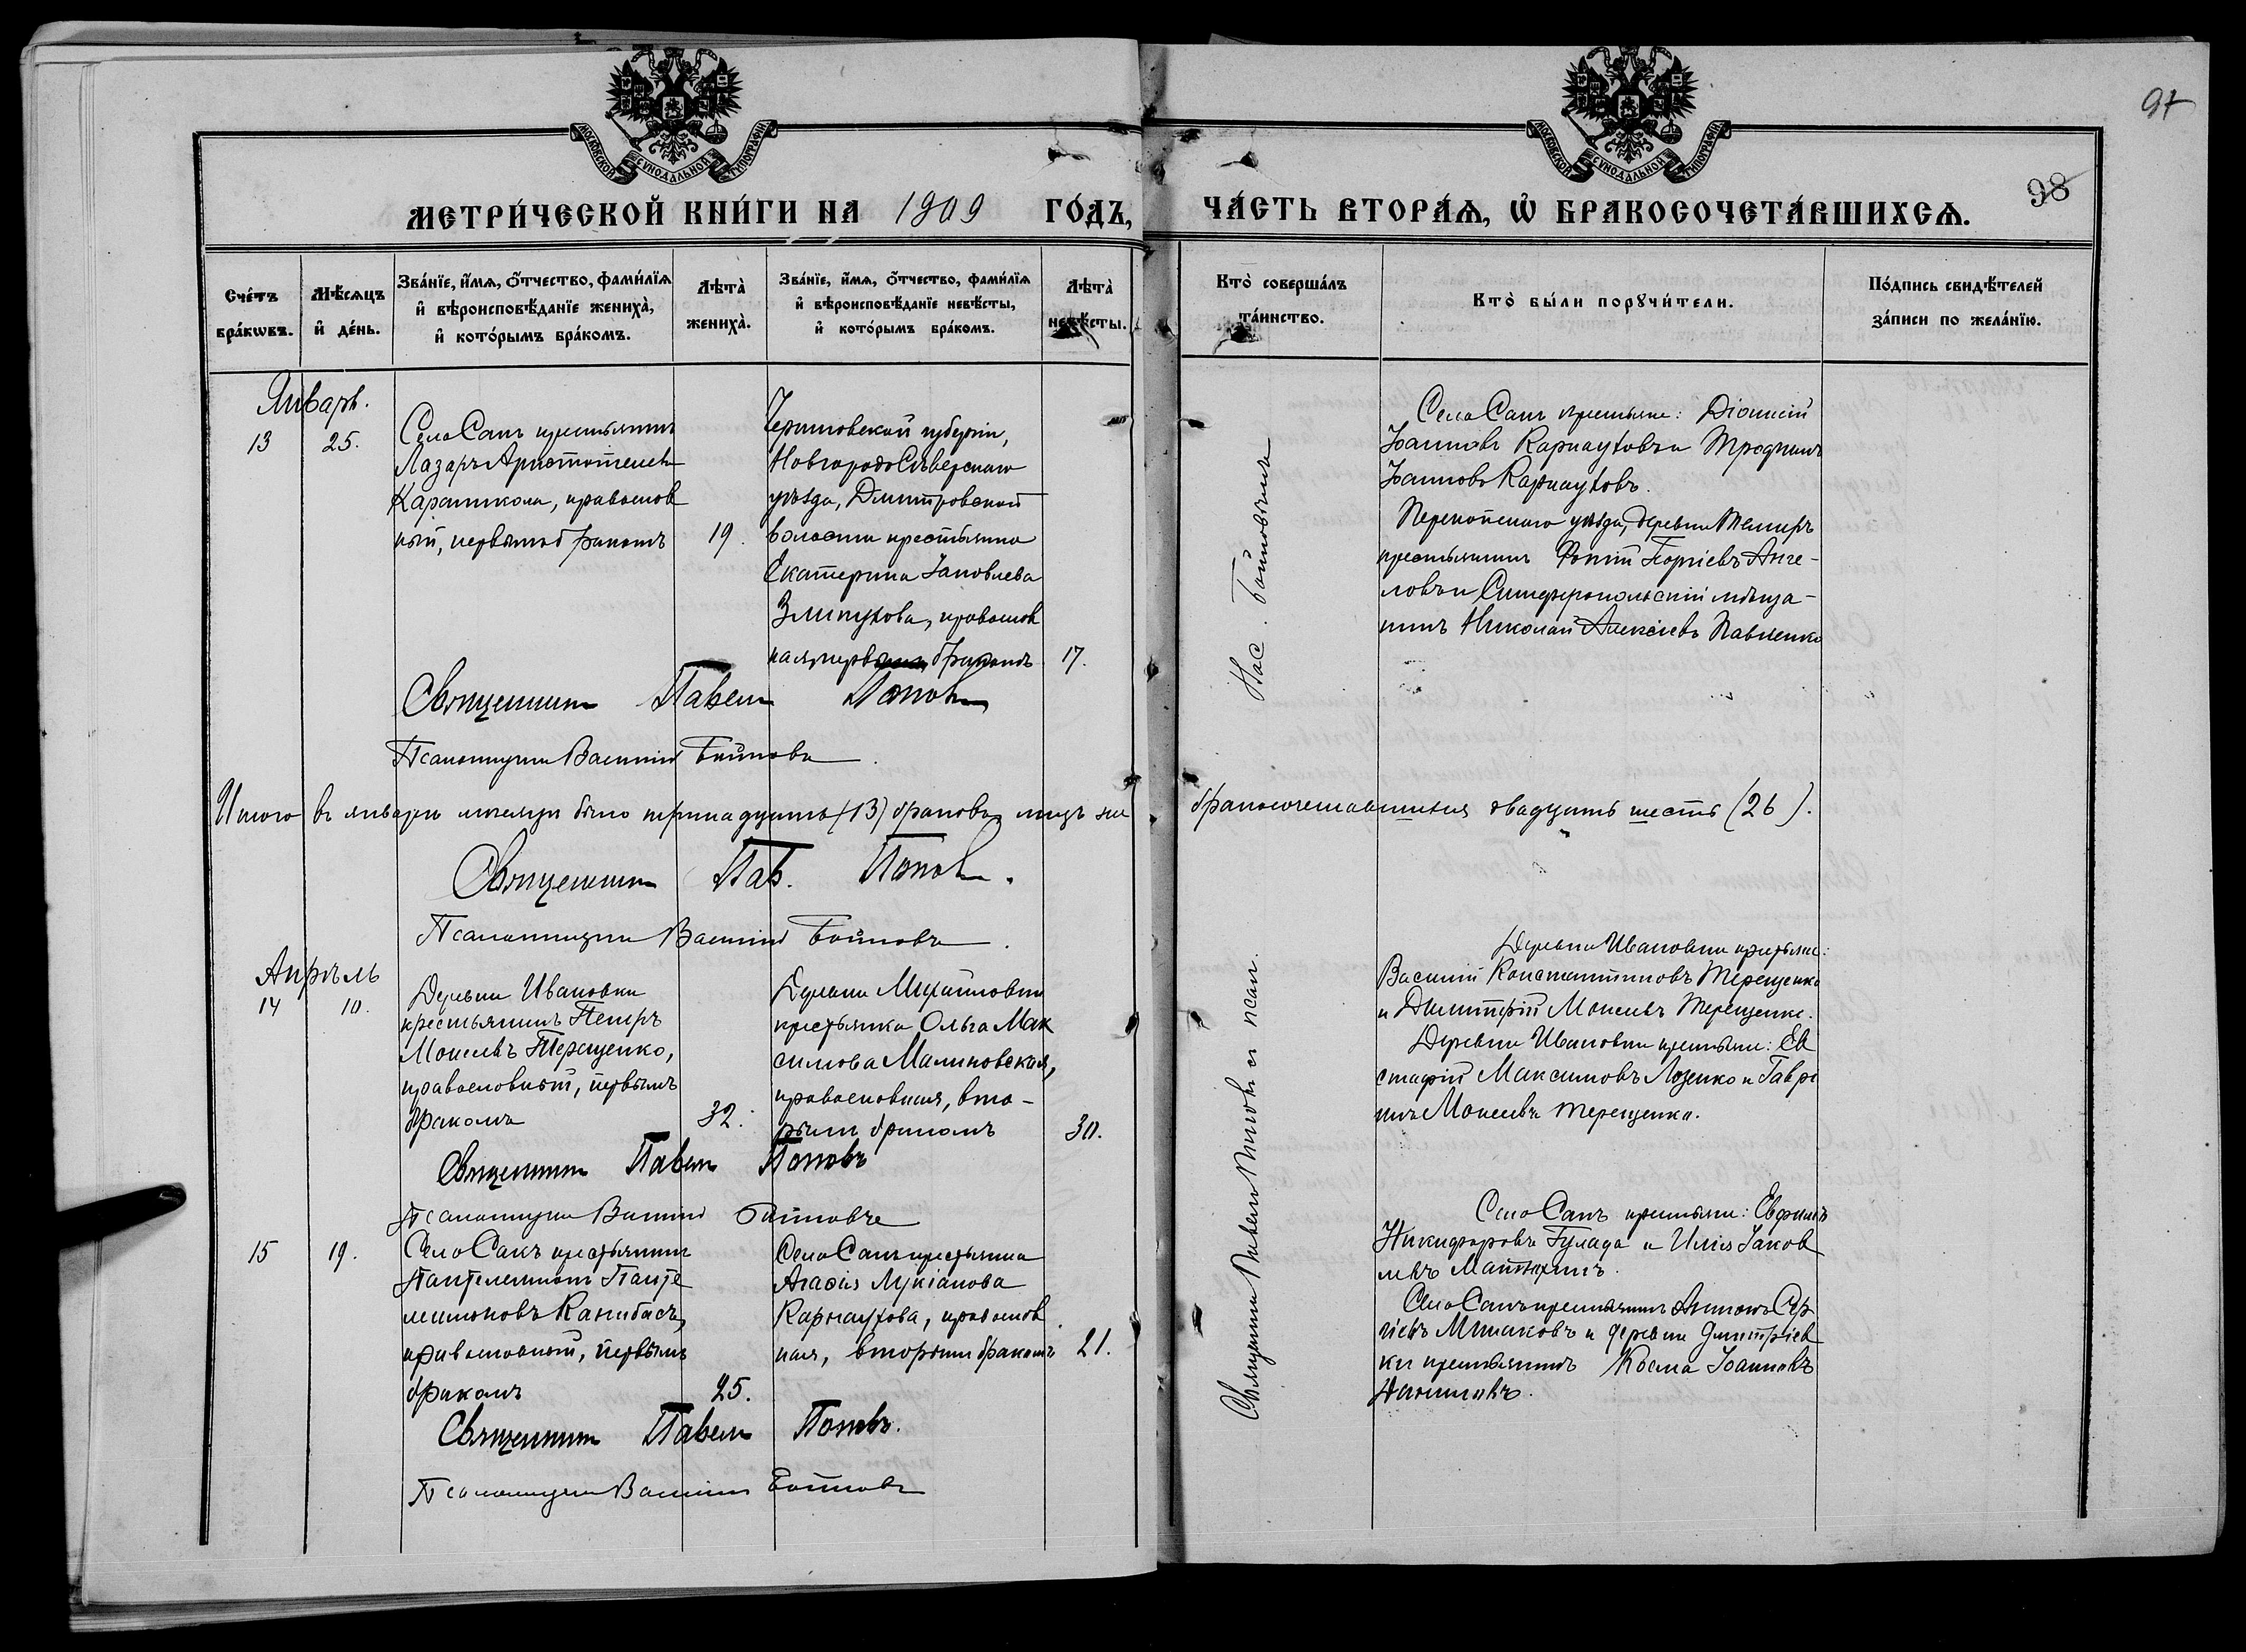 97
98
МОСКОВСКОЙ СѴНОДАЛЬНОЙ ТИПОГРАФІИ
МОСКОВСКОЙ СѴНОДАЛЬНОЙ ТИПОГРАФІИ
МЕТРИ́ЧЕСКОЙ КНИ́ГИ НА 1909 ГО́ДЪ,
ЧА́СТЬ ВТОРА́Ѧ, Ѽ БРАКОСОЧЕТА́ВШИХСѦ.
Сче́тъ
бра́кѡвъ.
Мѣ́сѧцъ
и҆ де́нь.
Зва́нїе, и҆́мѧ, ѻ҆́тчество, фами́лїѧ
и҆ вѣроисповѣ́данїе жениха̀,
и҆ кото́рымъ бра́комъ.
Лѣта̀
жениха̀.
Зва́нїе, и҆́мѧ, ѻ҆́тчество, фами́лїѧ
и҆ вѣроисповѣ́данїе невѣ́сты,
и҆ кото́рымъ бра́комъ.
Лѣта̀
невѣ́сты.
Кто̀ соверша́лъ
та́инство.
Кто̀ бы́ли порꙋчи́тели.
По́дпись свидѣ́телей
за́писи по жела́нїю.
Январь.
13
25.
Село Сакъ крестьянинъ
Лазарь Аристотелевъ
православ
ный, первымъ бракомъ
19.
Черниговской губерніи,
Новгородъ Сѣверскаго
уѣзда, Дмитровской
волости крестьянка
Екатерина Іаковлева
православ
ная, первымъ бракомъ
17.
Село Сакъ крестьяне: Діонисій
Іоанновъ Карнауховъ и Трофимъ
Іоанновъ Карнауховъ.
Перекопскаго уѣзда, деревни
крестьянинъ Фотій Георгіевъ Анге-
ловъ и Симферопольскій мѣща-
нинъ Николай Алексіевъ Павленко
Священникъ Павелъ Поповъ
Псаломщикъ Василій Бойновъ.
Итого въ январѣ мѣсяцѣ было тринадцать (13) браковъ, лицъ же
бракосочетавшихся двадцать шесть (26).
Священникъ Пав. Поповъ.
Псаломщикъ Василій Бойновъ.
Апрѣль
14
10.
Деревни Ивановки
крестьянинъ Петръ
Моисеевъ Терещенко,
православный, первымъ
бракомъ
32.
Деревни Михайловки
крестьянка Ольга Мак
симова Малиновская,
православная, вто-
рымъ бракомъ
30.
Деревни Ивановки крестьяне:
Василій Константиновъ Терещенко
и Димитрій Моисеевъ Терещенко.
Деревни Ивановки крестьяне: Ев
стафій Максимовъ Лозенко и Гаврі
илъ Моисеевъ Терещенко.
Священникъ Павелъ Поповъ
Псаломщикъ Василій Бойновъ
15
19.
Село Сакъ крестьянинъ
Пантелеимонъ Панте
леимоновъ
православный, первымъ
бракомъ
25.
Село Сакъ крестьянка
Агафія Лукіанова
Карнаухова, православ
ная, вторымъ бракомъ
21.
Священникъ Павелъ Поповъ и псал.
Вас. Бойновымъ
Село Сакъ крестьяне: Евфимъ
Никифоровъ Гулада и Илія Іаков
левъ
Село Сакъ крестьянинъ Антонъ Сер
гіевъ и деревни Димитріев
ки крестьянинъ Косма Іоанновъ
Даниловъ.
Священникъ Павелъ Поповъ.
Псаломщикъ Василій Бойновъ